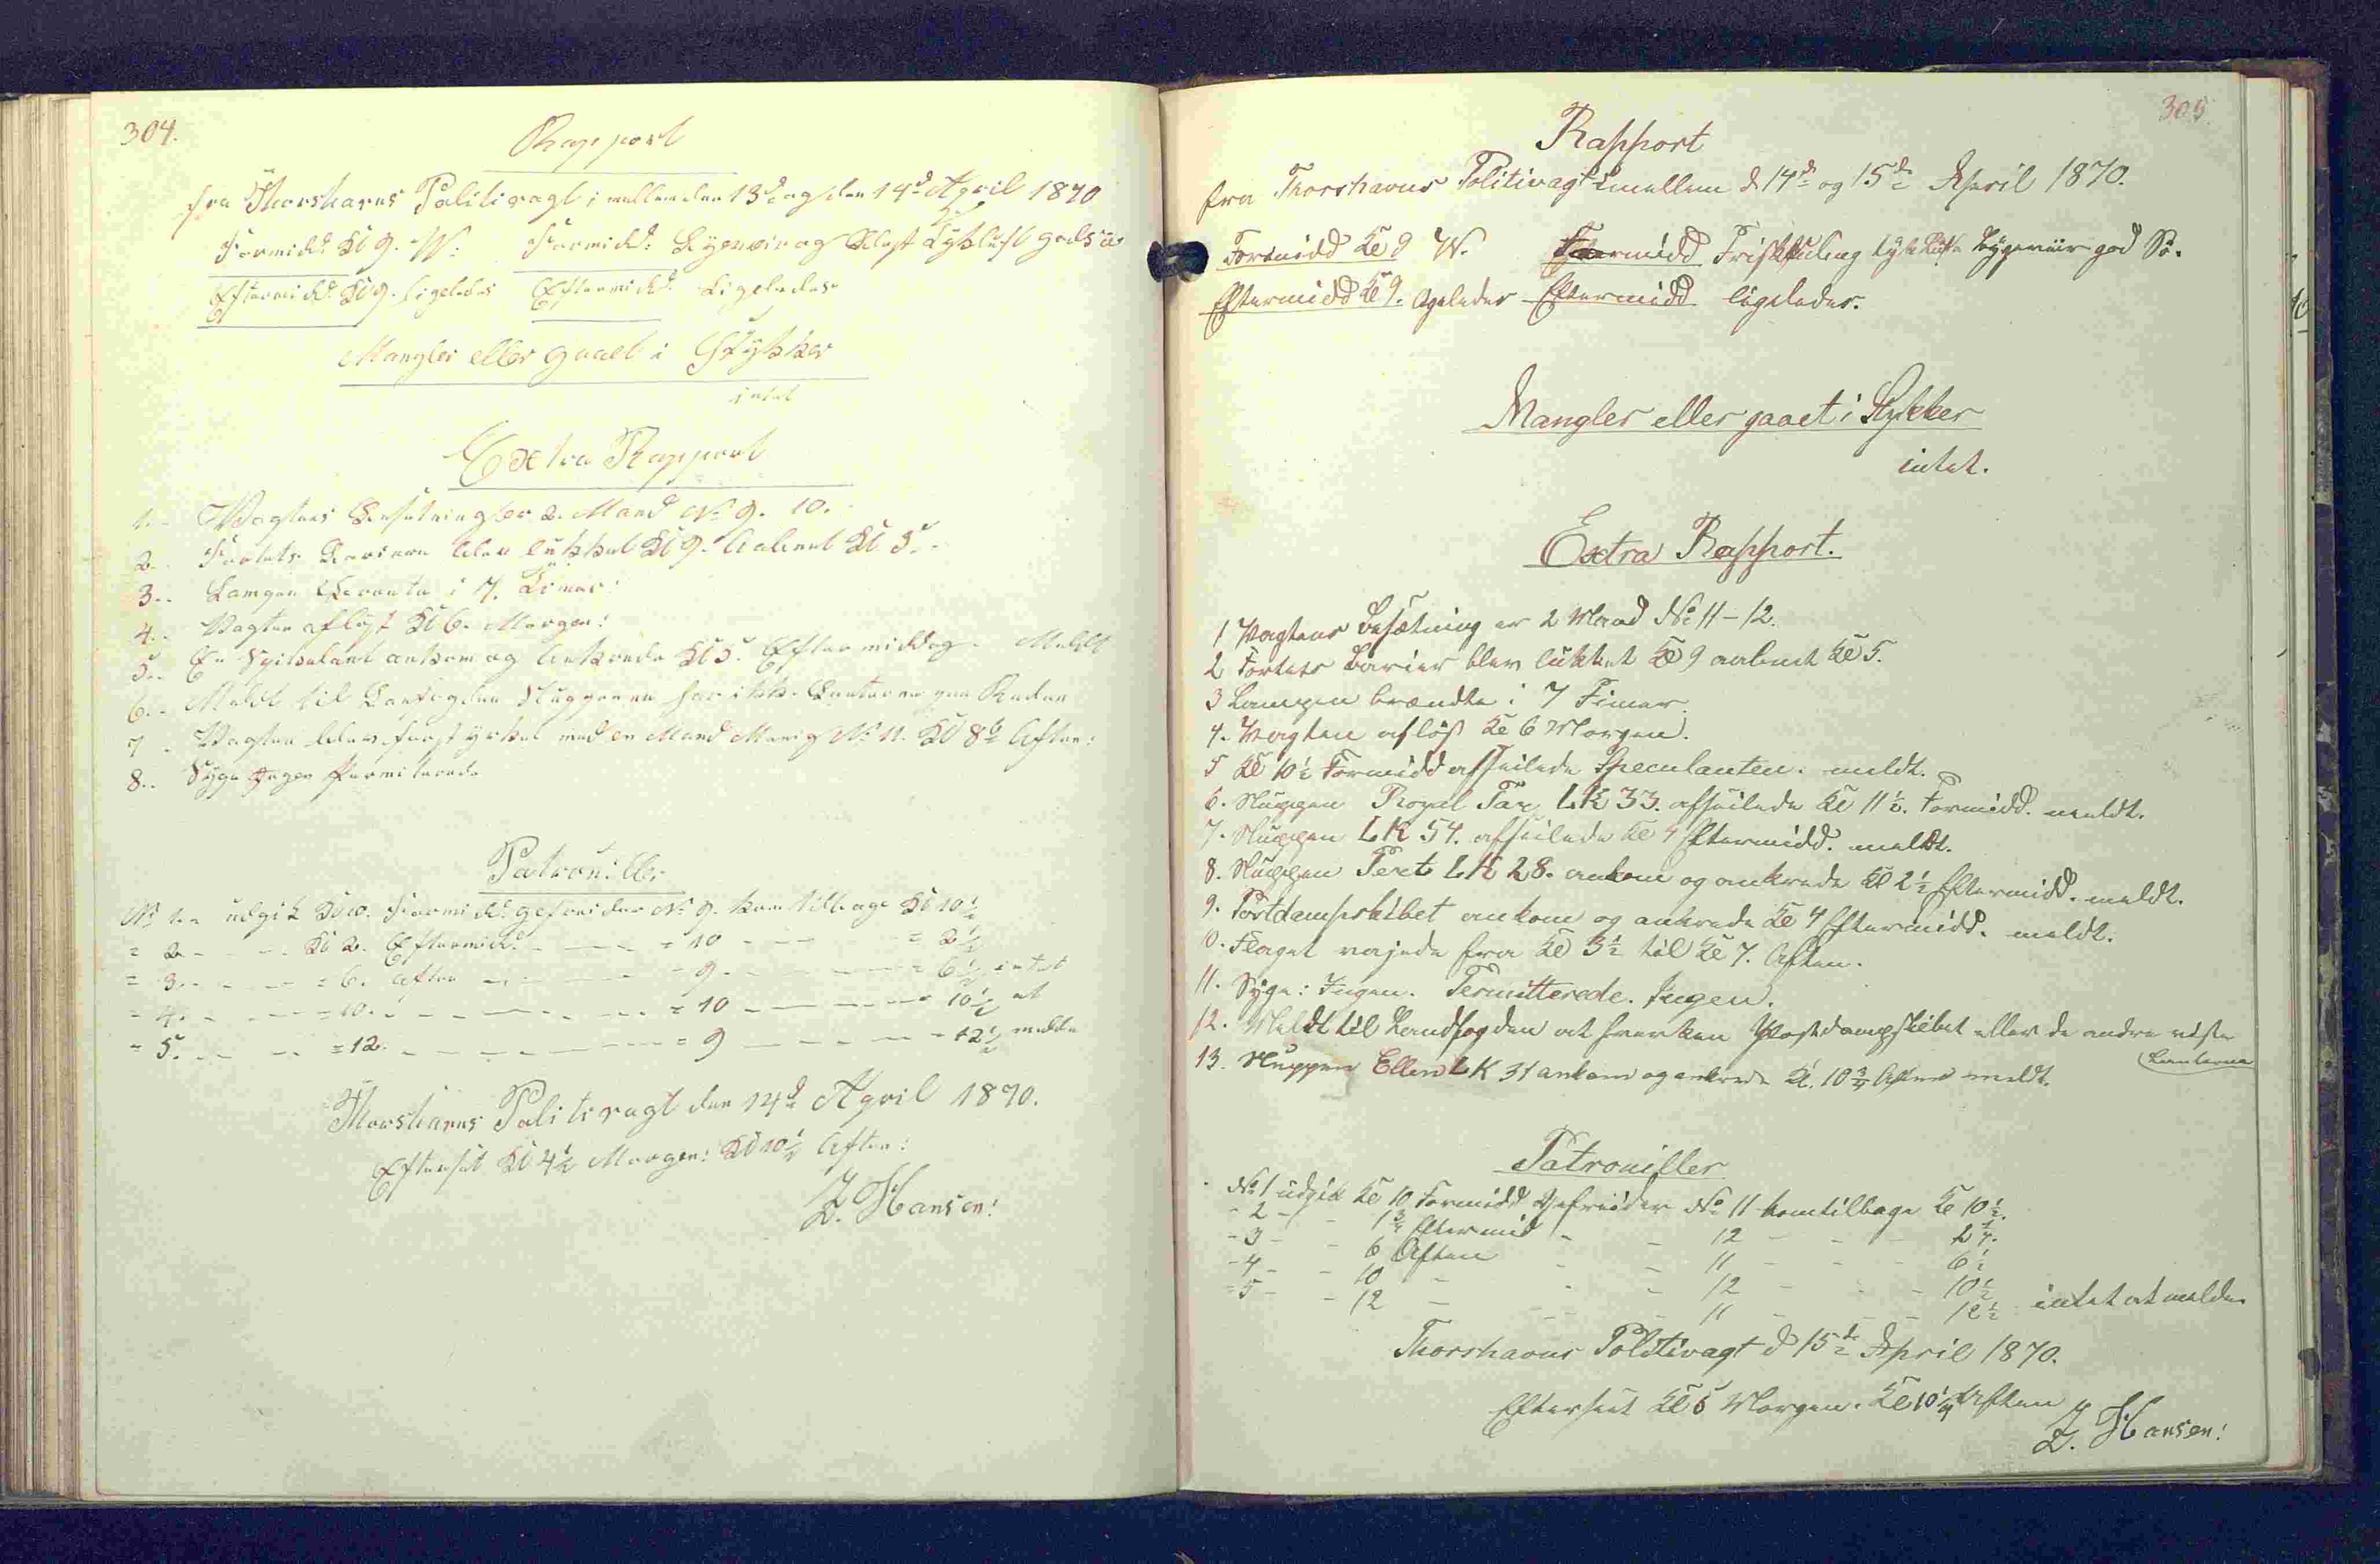 304.
Rapport
fra Thorshavns Politivagt imellem den 13d og den 14d April 1870
Formidd: Kl 9. W: Formidd: Bÿgeveir og Blæst Tÿkluft god Sö
Eftermidd: Kl 9. ligeledes Eftermidd: Ligeledes
Mangler eller gaaet i Stÿkker
intet
Extra Rapport
1.. Vagtens Besætning er 2. Mand No 9. 10.
2.. Fortets Bariere blev lukket Kl 9. Aabnet Kl 5..
3.. Lampen Brænte i 7. Timer:
4.. Vagten aflöst Kl 6. Morgen:
5.. En Spikelant ankom og Ankrede Kl 5. Eftermiddag. Meldt
6.. Meldt til Lanfogden Sluppen har ikke Lanterne paa Reden
7.. Vagten blev forstÿrket med en Mand Menig No 11. Kl 8½ Aften:
8.. Sÿge Ingen Permiterede
Patrouiller
No 1.. udgik Kl 10. Formidd: gefreider No 9. kom tilbage Kl 10½
= 2. - - Kl 2. Eftermidd: - - = 10 - - = 2½
= 3. - - = 6. Aften - - = 9. - - = 6½ intet
= 4. - - = 10. - - = 10 - - = 10½ at
= 5. - - = 12. - - = 9 - - = 12½ melde
Thorshavns Politivagt den 14d April 1870.
Efterset Kl 4½ Morgen: Kl 10½ Aften:
Z. Hansen:
305
Rapport
fra Thorshavns Politivagt imellem d 14de og 15de April 1870.
Formidd Kl 9 W. Formidd Friskkuling tÿk Luft Bÿgeveir god Sö.
Eftermidd Kl 9. ligeledes Eftermidd ligeledes.
Mangler eller gaaet i Stykker
intet.
Extra Rapport.
1 Vagtens Besætning er 2 Mand No 11-12.
2 Fortets Barier blev lukket Kl 9 aabnet Kl 5.
3 Lampen brændte i 7 Timer.
4. Vagten aflöst Kl 6 Morgen.
5 Kl 10½ Formidd afseilede Speculanten. meldt.
6. Sluppen Royal Tar LK 33. afseilede Kl 11½. Formidd. meldt.
7. Sluppen LK 54. afseilede Kl 4 Eftermidd. meldt.
8. Sluppen Teret LK 28. ankom og ankrede Kl 2½ Eftermidd. meldt.
9. Postdampskibet ankom og ankrede Kl 4 Eftermidd. meldt.
10. Flaget vajede fra Kl 3½ til Kl 7. Aften.
11. Syge: Ingen. Permitterede. Ingen.
12. Meldt til Landfogden at hverken Postdampskibet eller de andre viste
Lanterne
13. Sluppen Ellen LK 31 ankom og ankrede Kl. 10¾ Aften meldt.
Patrouiller
No 1 udgik Kl 10 Formidd Gefreider No 11 kom tilbage Kl 10½.
- 2 - - 1¾ Eftermid - - 12 - - 2¼.
- 3 - - 6 Aften - - 11 - - 6½
- 4 - - 10 - - 12 - - 10½
= 5 - - 12 - - 11 - - 12½ intet at melde
Thorshavns Politivagt d 15de April 1870.
Efterseet Kl 5 Morgen. Kl 10¼ Aften
Z. Hansen: